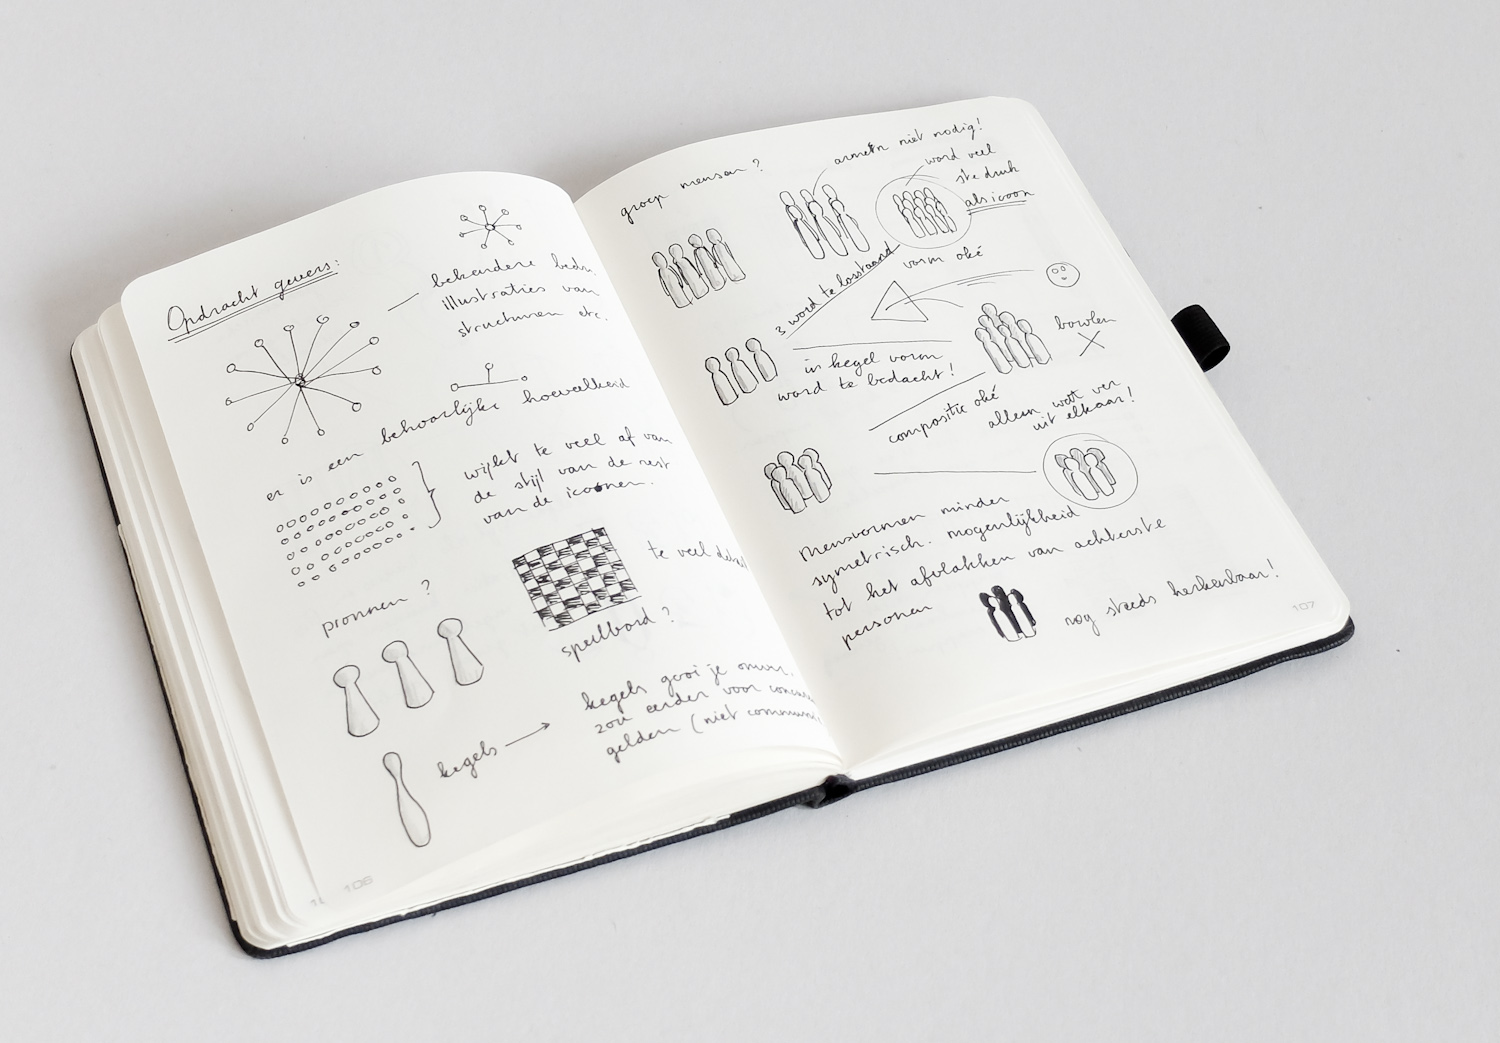 Opdracht gevers:
bekendere
illustraties van
structuren etc.
er is een behoorlijke hoeveelheid
wijkt te veel af van
de stijl van de rest
van de iconen.
pionnen ?
te veel
speelbord ?
kegels
kegels gooi je
zou eerder voor
gelden (niet
106
groep mensen ?
armen niet nodig!
word veel
te druk
als icoon
vorm oké
3 word te losstaand
in kegel vorm
word te bedacht!
bowlen
compositie oké
alleen wat ver
uit elkaar!
Mensvormen minder
symetrisch. mogenlijkheid
tot het afvlakken van achterste
personen
nog steeds herkenbaar!
107